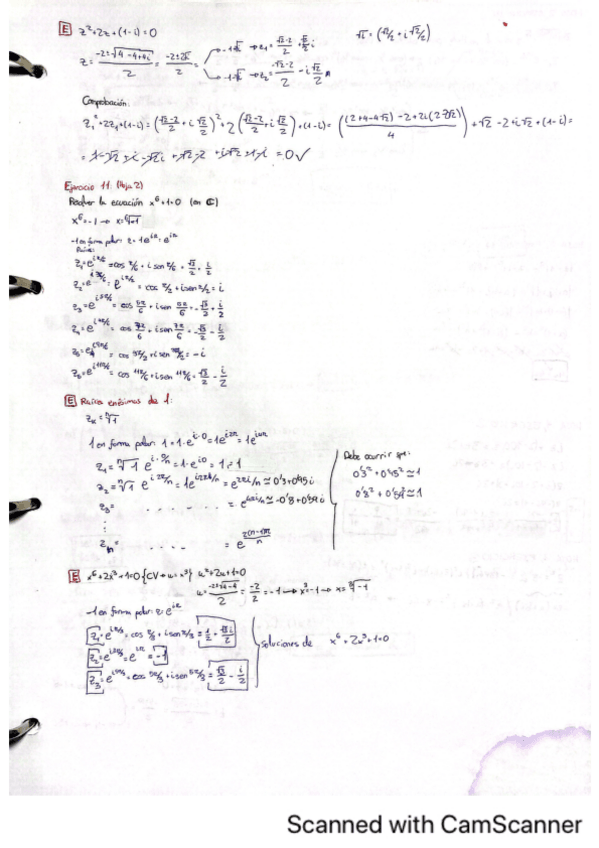 E z²+2z+(1-i)=0 √i = (√2/2 + i √2/2)
z = (-2±√(4-4+4i))/2 = (-2±2√i)/2 → -1+√i → z₁ = (√2-2)/2 + √2/2 i
→ -1-√i → z₂ = (-√2-2)/2 - i √2/2
Comprobación:
z₁²+2z₁+(1-i) = ((√2-2)/2 + i √2/2)² + 2((√2-2)/2 + i √2/2) + (1-i) = (((2+4-4√2)-2+2i(2-2√2))/4) + √2-2+i√2+(1-i) =
= 1-√2+i-√2i+√2-2+i√2+1-i = 0 ✓
Ejercicio 11: (Hoja 2)
Resolver la ecuación x⁶+1=0 (en ℂ)
x⁶=-1 → x=⁶√-1
-1 en forma polar: z = 1e^iπ = e^iπ
Raíces:
z₁ = e^iπ/6 = cos π/6 + i sen π/6 = √3/2 + i/2
z₂ = e^i3π/6 = e^iπ/2 = cos π/2 + i sen π/2 = i
z₃ = e^i5π/6 = cos 5π/6 + i sen 5π/6 = -√3/2 + i/2
= cos 7π/6 + i sen 7π/6 = -√3/2 - i/2
= -i
= e^i11π/6 = cos 11π/6 + i sen 11π/6 = √3/2 - i/2
E Raíces enésimas de 1:
z_k = ⁿ√1
1 en forma polar: 1 = 1·e^i·0 = 1e^i2π = 1e^i4π
z₁ = ⁿ√1 e^i·0/n = 1·e^i0 = 1·1 = 1
z₂ = ⁿ√1 e^i2π/n = 1e^i2π/n = e^2πi/n
z₃ = . . . . . . = e^4πi/n
⋮
zₙ = . . . . = e
Debe ocurrir que:
≃1
≃1
E x⁶+2x³+1=0 {CV→u=x³} u²+2u+1=0
u = (-2±√(4-4))/2 = -2/2 = -1 → x³=-1 → x=³√-1
-1 en forma polar: e^iπ
z₁ = e^iπ/3 = cos π/3 + i sen π/3 = 1/2 + √3i/2
z₂ = e^i3π/3 = e^iπ = -1
z₃ = e^i5π/3 = cos 5π/3 + i sen 5π/3 = √3/2 - i/2
soluciones de x⁶+2x³+1=0
Scanned with CamScanner